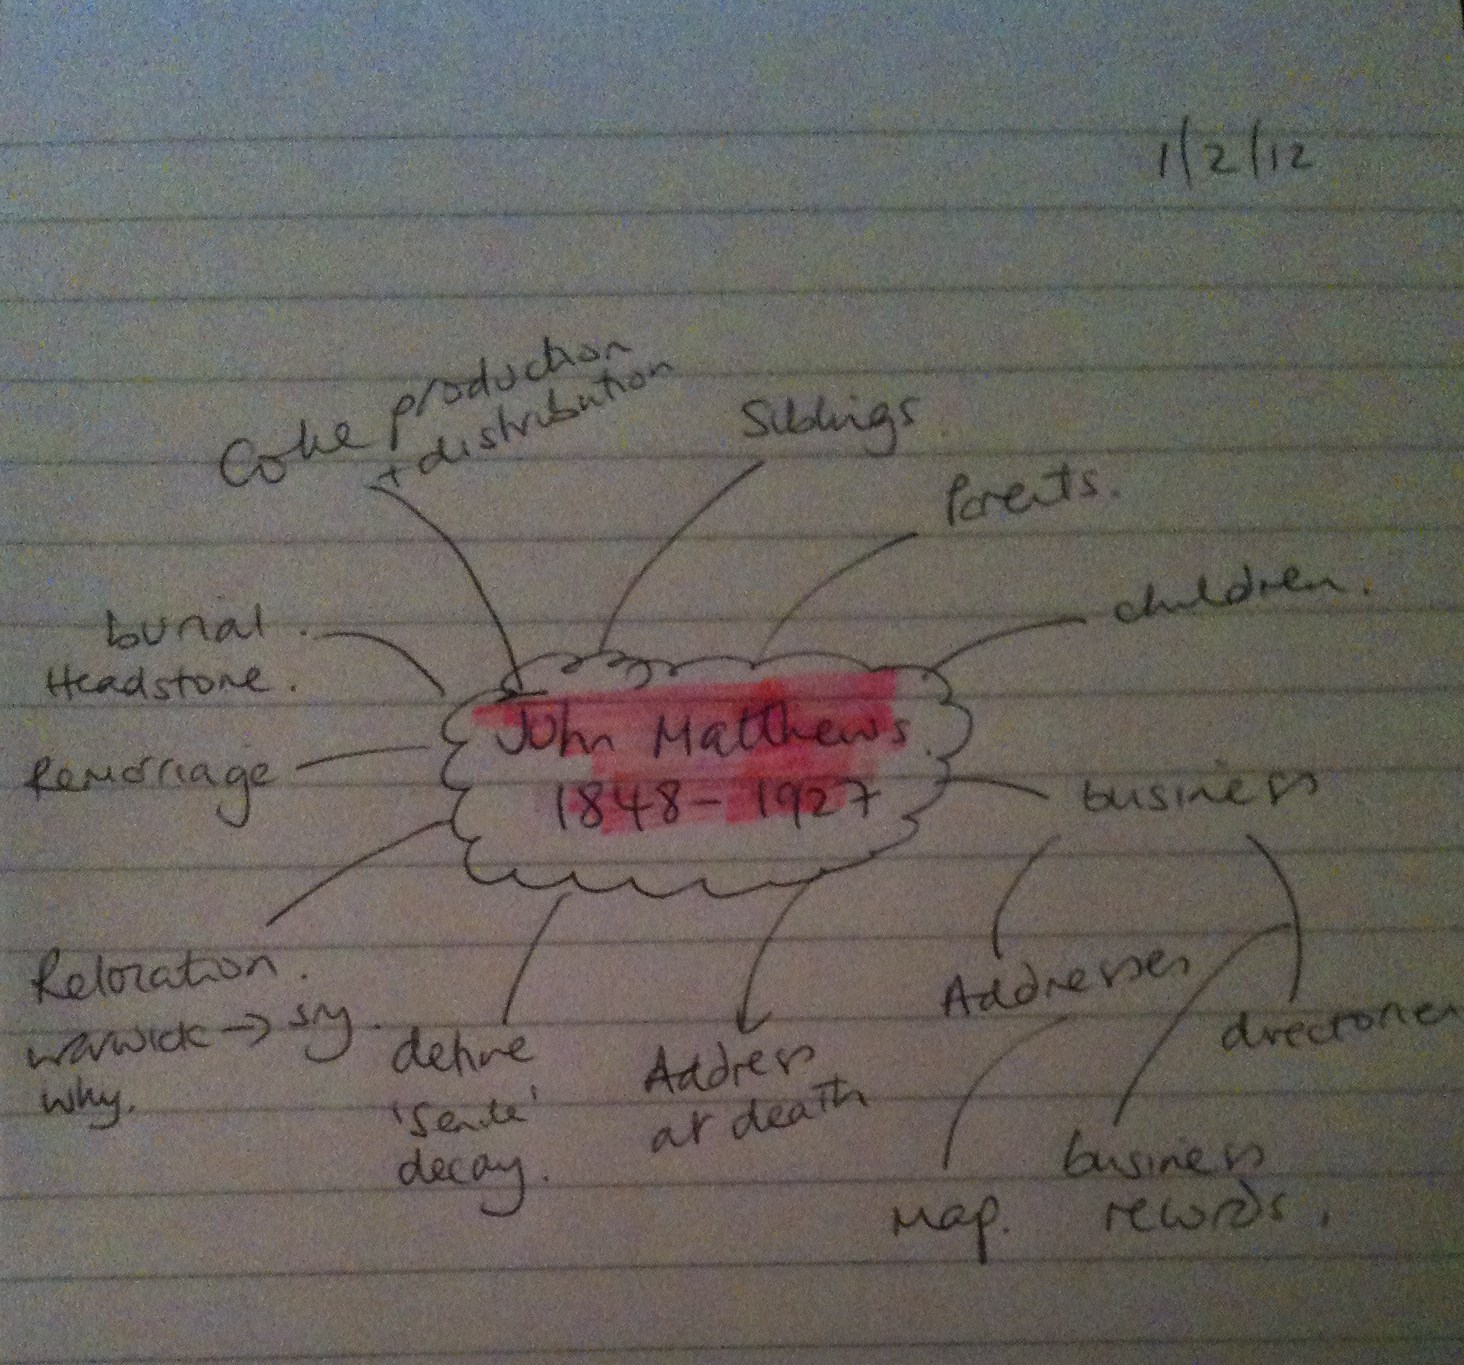 1/2/12
Coke production
+ distribution
Siblings.
Parents.
children.
burial.
Headstone.
Remarriage
John Matthews.
1848-1927
business
Addresses
directories
Relocation.
warwick → sry.
why.
define
'senile'
decay.
Address
at death
Map.
business
records.